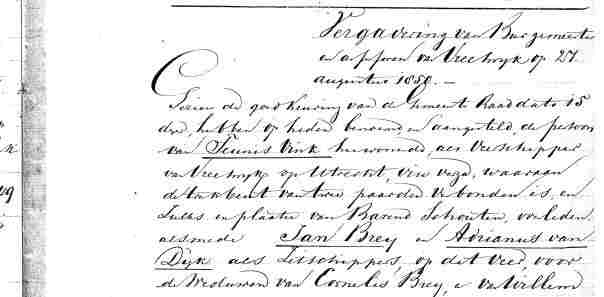 Vergadering van Burgemeester
en assessoren van Vreeswyk op 27
augustus 1850. —
Gezien de goedkeuring van de Gemeente Raad dato 15
dezer, hebben op heden benoemd en aangesteld, de persoon
van Teunis Vink, hier wonende, als Veerschipper
van Vreeswyk op Utrecht, vice versa, waaraan
de van twee paarden verbonden is, en
zulks in plaats van Barend Schouten, overleden
alsmede Jan Brey en Adrianus van
Dijk als Letschippers, op dit veer, voor
de Weduwen van Cornelis Brey, en van Willem